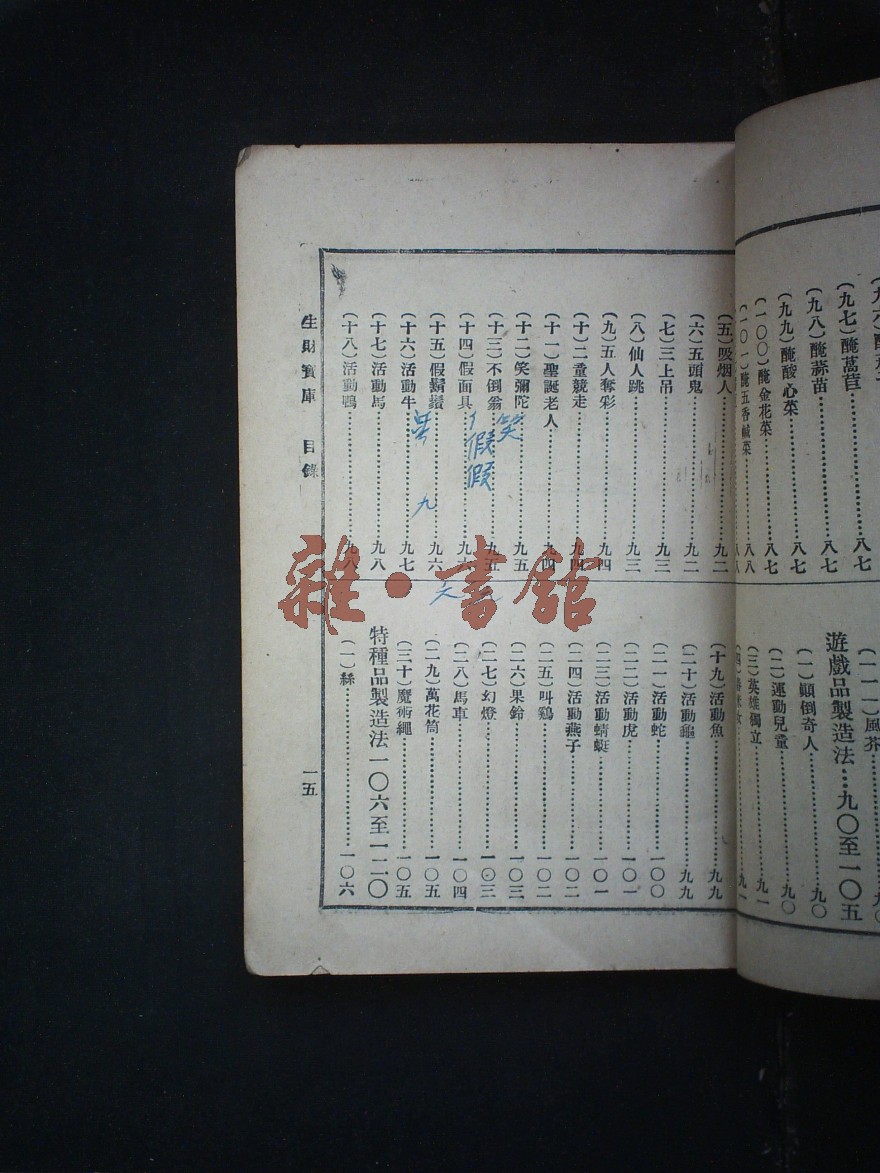 (九七)醃萵苣……八七
(九八)醃蒜苗……八七
(九九)醃酸心菜……八七
(一〇〇)醃金花菜……八七
(一〇一)醃五香鹹菜……八八
遊戲品製造法…九〇至一〇五
(一)顚倒奇人……九〇
(二)運動兒童……九〇
(三)英雄獨立……九一
(五)吸烟人……九二
(六)五頭鬼……九二
(七)三上吊……九三
(八)仙人跳……九三
(九)五人奪彩……九四
(十)二童競走……九四
(十一)聖誕老人……九四
(十二)笑彌陀……九五
(十三)不倒翁……九五
(十四)假面具……九六
(十五)假鬚鬢……九六
(十六)活動牛……九七
(十七)活動馬……九八
(十八)活動鴨……九八
(十九)活動魚……九九
(二十)活動龜……九九
(二一)活動蛇……一〇〇
(二二)活動虎……一〇一
(二三)活動蜻蜓……一〇一
(二四)活動燕子……一〇二
(二五)叫鷄……一〇二
(二六)果鈴……一〇三
(二七)幻燈……一〇三
(二八)馬車……一〇四
(二九)萬花筒……一〇五
(三十)魔術繩……一〇五
特種品製造法一〇六至一二〇
(一)絲……一〇六
生財寶庫 目錄
一五
笑
假
假
九
雜·書館